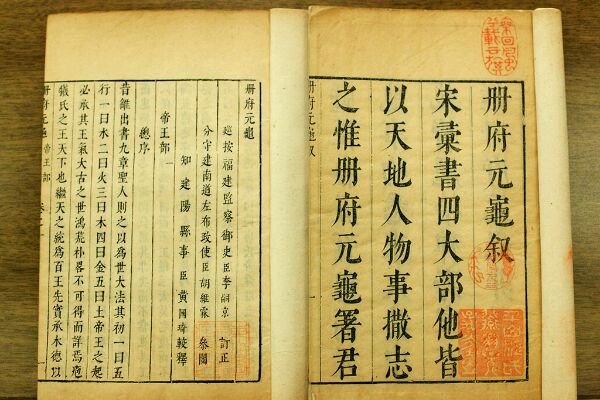 册府元龜叙
宋彚書四大部他皆
以天地人物事撒志
之惟册府元龜署君
册府元龜叙
册府元龜
廵按福建監察御史臣李嗣京 訂正
分守建南道左布政使臣胡維霖 參閱
知建陽縣事臣黃國琦較釋
帝王部一
總序
昔雒出書九章聖人則之以為世大法其初一曰五
行一曰水二曰火三曰木四曰金五曰土帝王之起
必承其王氣大古之世鴻荒朴畧不可得而詳焉庖
犧氏之王天下也繼天之統為百王先實承木德以
册府元龜 帝王部 卷之一